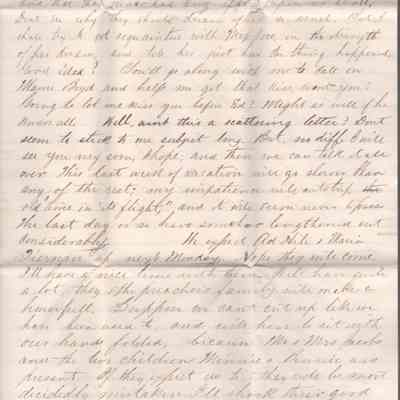 Don't see why they should
share by & get acquainted with on the strength
of her and tell her just how the thing happened.
Good idea? You'll go along with me to call on
Mamie Boyd and help me get that kiss, won't you?
Going to let me kiss you before Ed? Might as well if he
knows all. Well, aint this a scattering letter? Don't
seem to stick to one subject long. But, no diff. I will
see you very soon, I hope, and then we can talk it all
over. This last week of vacation will go slower than
any of the rest; my impatience will outstrip the
old time in "its flight," and it will seem never to pass.
The last day or so have somehow lengthened out
considerably. We expect Ad Hile & Maria
up next Monday. Hope they will come.
I'll have a nice time with them. Will have quite
a lot, they & the preacher's family will make a
houseful. I suppose we can't cut up like we
have been used to, and will have to sit with
our hands folded, because Mr & Mrs Jacobs
and the two children Minnie & are
present. If they expect us to, they will be most
decidedly mistaken. I'll shock their good